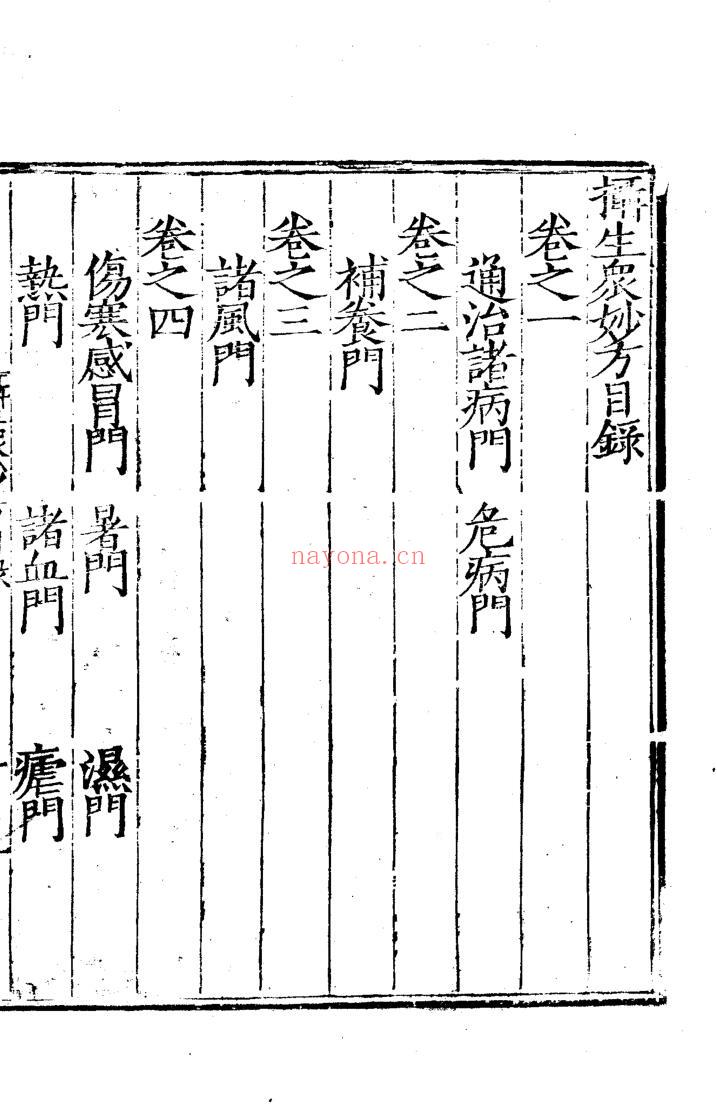 攝生衆妙方目錄
卷之一
通治諸病門 危病門
卷之二
補養門
卷之三
諸風門
卷之四
傷寒感冒門 暑門 濕門
熱門 諸血門 瘧門
nayona.cn